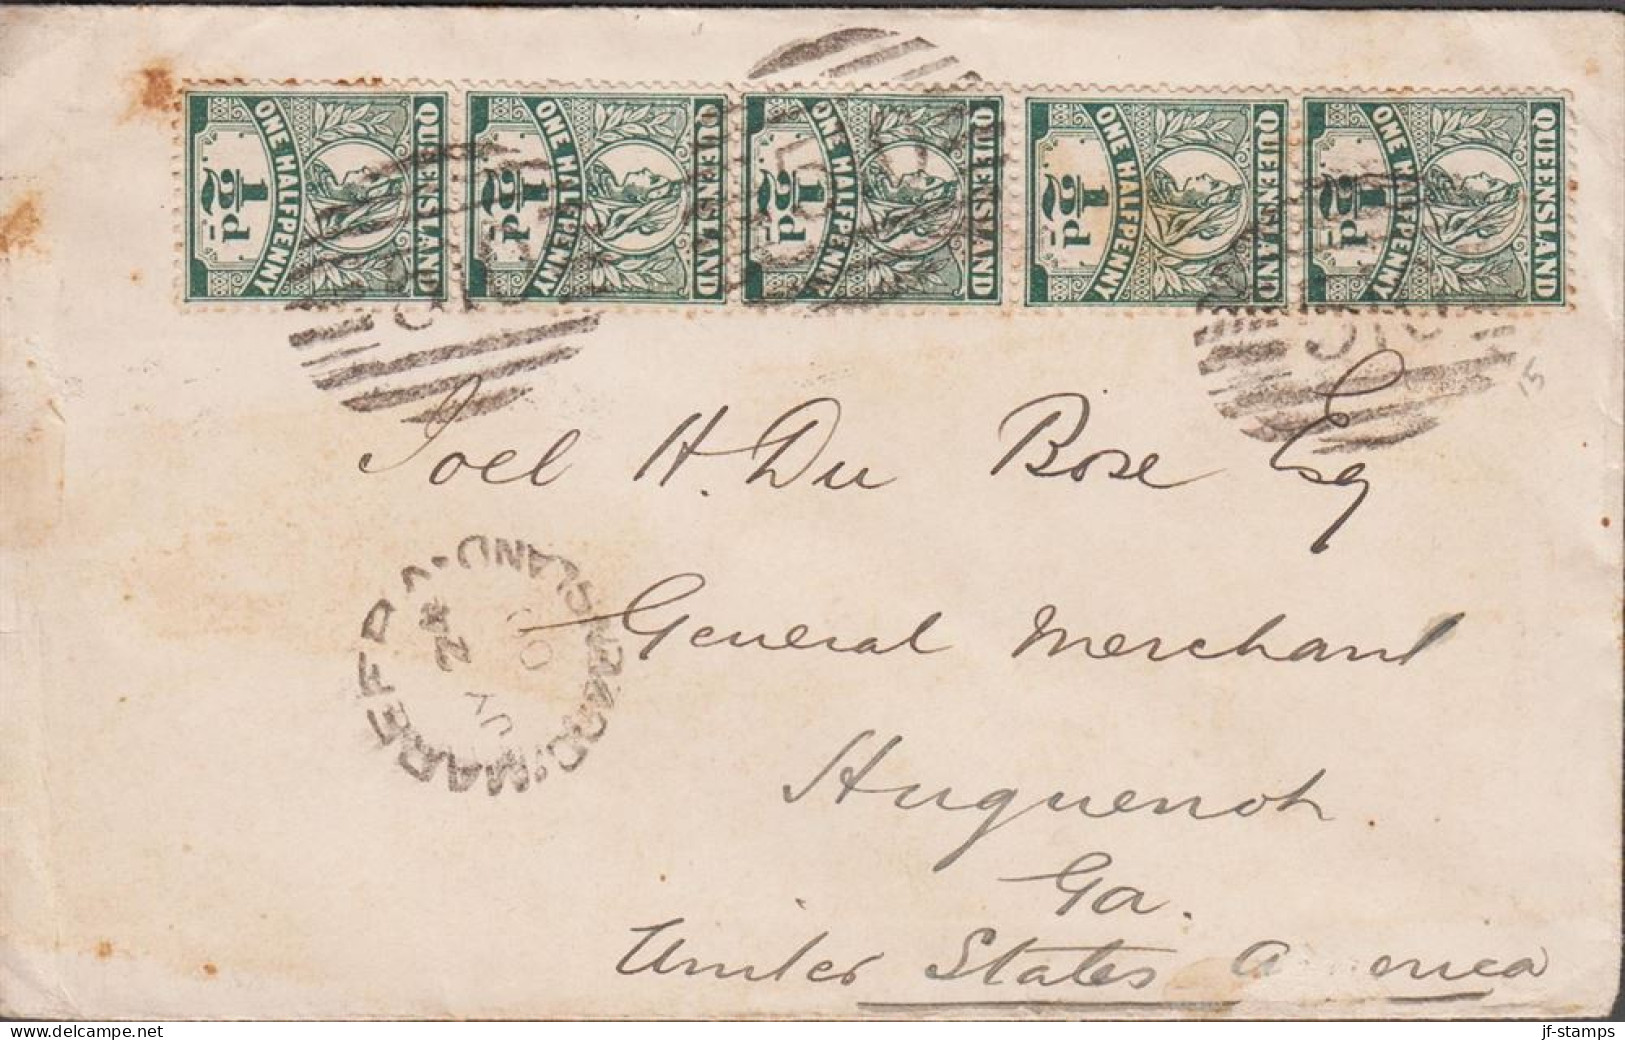 QUEENSLAND ONE HALFPENNY ½ P. d
QUEENSLAND ONE HALFPENNY ½ P. d
QUEENSLAND ONE HALFPENNY ½ P. d
QUEENSLAND ONE HALFPENNY ½ P. d
QUEENSLAND ONE HALFPENNY ½ P. d
15
Joel H. Du Bose Esq
General Merchant
Huguenot
Ga.
United States America
24
00
jf-stamps